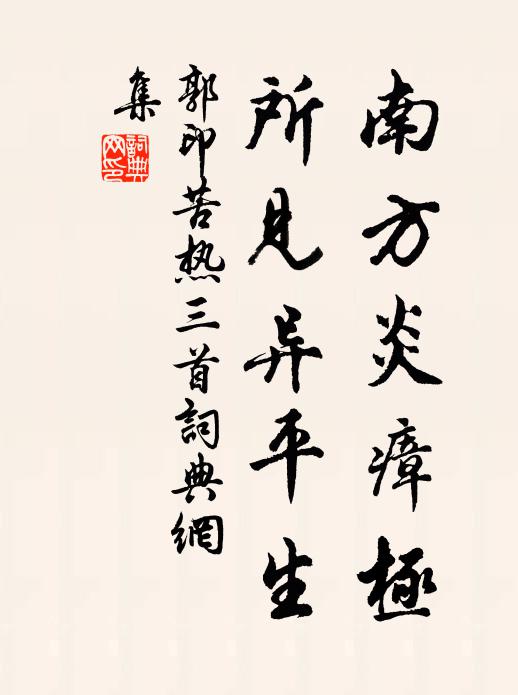 南方炎瘴極
所見异平生
郭印苦热三首詞典網
集
詞典網印